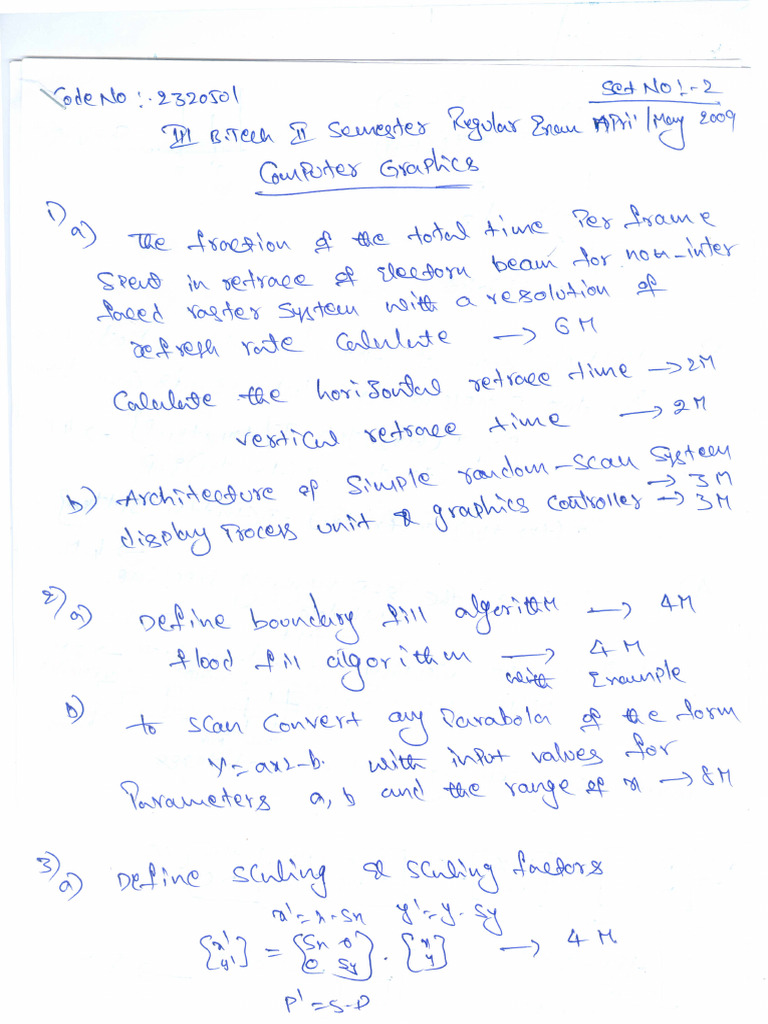 Code No :- 2320501
Set No :- 2
III B.Tech II Semester Regular Exam April/May 2009
Computer Graphics
1) a) The fraction of the total time Per frame
Spent in retrace of Electorn beam for non-inter
faced raster System with a resolution of
refresh rate Calculate → 6M
Calculate the horizontal retrace time → 2M
vertical retrace time → 2M
b) Architecture of Simple random-scan System → 3M
display Process unit & graphics controller → 3M
2) a) Define boundary fill algorithm → 4M
flood fill algorithm → 4M
with Example
b) to Scan Convert any Parabola of the form
y = ax2-b. with input values for
Parameters a, b and the range of x → 8M
3) a) Define Scaling & Scaling factors
x' = x . Sx y' = y . Sy
[x' y'] = [Sx 0 0 Sy] . [x y] → 4M
P' = S.P